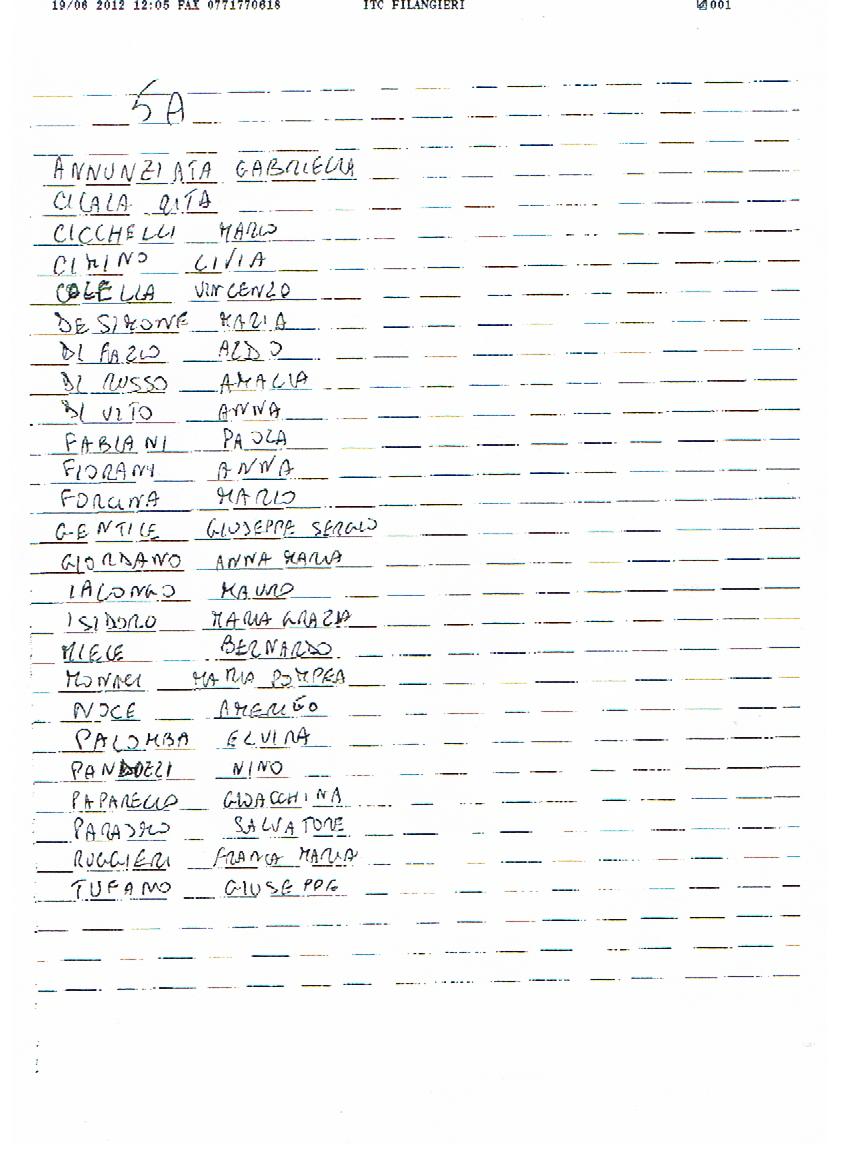 19/06 2012 12:05 FAX 0771770618 ITC FILANGIERI 001
5A
ANNUNZIATA GABRIELLA
CICALA RITA
CICCHELLI MARIO
CIMINO LIVIA
COLELLA VINCENZO
DE SIMONE MARIA
DI FAZIO ALDO
DI RUSSO AMALIA
DI VITO ANNA
FABIANI PAOLA
FIORANI ANNA
FORCINA MARIO
GENTILE GIUSEPPE SERGIO
GIORDANO ANNA MARIA
IALONGO MAURO
ISIDORO MARIA GRAZIA
MIELE BERNARDO
MONACI MARIA POMPEA
NOCE AMERIGO
PALOMBA ELVIRA
PANDOZI NINO
PAPARELLO GIOACCHINA
PARADISO SALVATORE
RUGGIERI FRANCA MARIA
TUFANO GIUSEPPE